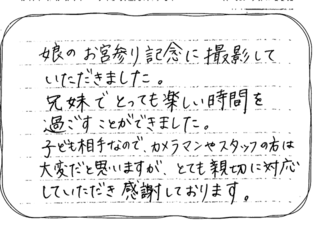 娘のお宮参り記念に撮影して
いただきました。
兄妹でとっても楽しい時間を
過ごすことができました。
子ども相手なので、カメラマンやスタッフの方は
大変だと思いますが、とても親切に対応
していただき感謝しております。